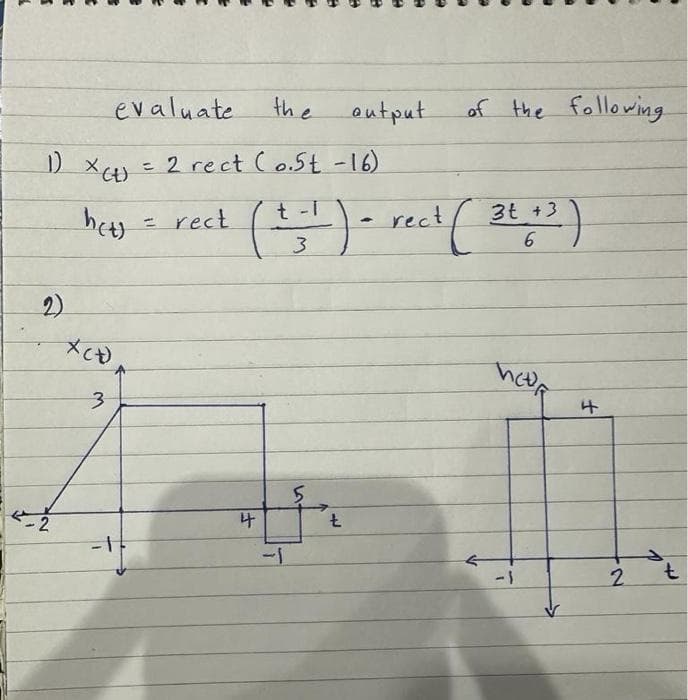 evaluate the output of the following
1) x(t) = 2 rect (0.5t -16)
h(t) = rect ( t -1 / 3 ) - rect ( 3t +3 / 6 )
2)
x(t)
3
-2
-1
4
5
-1
t
h(t)
4
-1
2
t